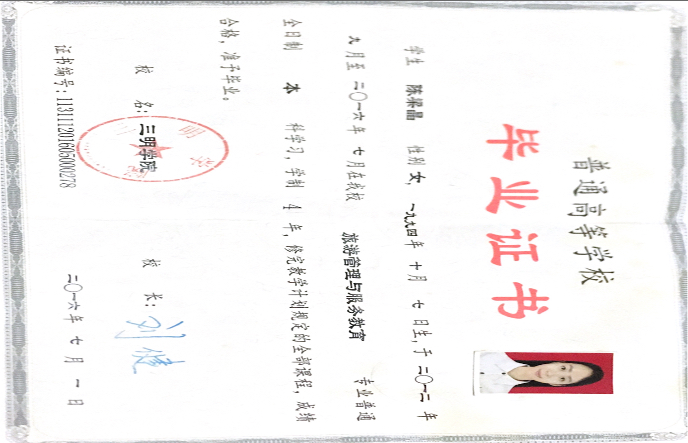 普通高等学校
毕业证书
学生 陈果晶 性别 女，一九九四年 十月 七日生，于 二〇一二 年
九月至 二〇一六年 七月在我校 旅游管理与服务教育 专业普通
全日制 本 科学习，学制 4 年，修完教学计划规定的全部课程，成绩
合格，准予毕业。
校 名：三明学院 校 长：刘健
证书编号：113111201605000278 二〇一六年 七月 一日